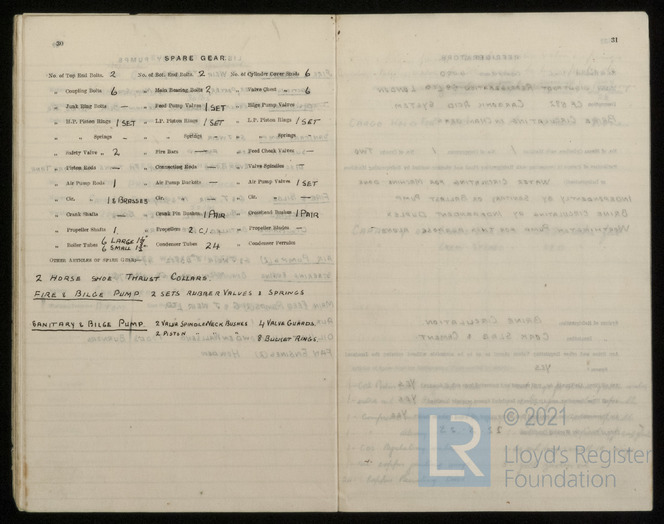 30
SPARE GEAR.
No. of Top End Bolts. 2 No. of Bot. End Bolts 2 No. of Cylinder Cover Studs 6
„ Coupling Bolts 6 „ Main Bearing Bolts 2 „ Valve Chest „ 6
„ Junk Ring Bolts — „ Feed Pump Valves 1 SET „ Bilge Pump Valves
„ H.P. Piston Rings 1 SET „ I.P. Piston Rings 1 SET „ L.P. Piston Rings 1 SET
„ „ Springs - „ „ Springs „ „ Springs -
„ Safety Valve „ 2 „ Fire Bars — „ Feed Check Valves —
„ Piston Rods — „ Connecting Rods — „ Valve Spindles —
„ Air Pump Rods 1 „ Air Pump Buckets — „ Air Pump Valves 1 SET
„ Cir. „ 1 & BRASSES „ Cir. „ — „ Cir. „ —
„ Crank Shafts — „ Crank Pin Bushes 1 PAIR „ Crosshead Bushes 1 PAIR
„ Propeller Shafts 1. „ Propellers 2 C.I. „ Propeller Blades —
„ Boiler Tubes 6 LARGE 6 SMALL „ Condenser Tubes 24 „ Condenser Ferrules
OTHER ARTICLES OF SPARE GEAR:—
2 HORSE SHOE THRUST COLLARS
FIRE & BILGE PUMP 2 SETS RUBBER VALVES & SPRINGS
SANITARY & BILGE PUMP 2 VALVE SPINDLE NECK BUSHES 4 VALVE GUARDS.
2 PISTON „ „ 8 BUCKET RINGS.
31
© 2021
LR
Lloyd's Register
Foundation